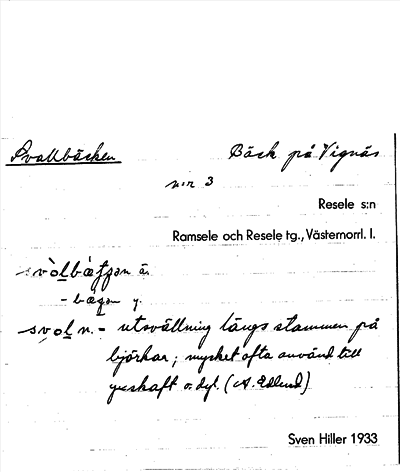 Svallbäcken Bäck på Vignäs
n:r 3
Resele s:n
Ramsele och Resele tg., Västernorrl. l.
svo̱lbæ̀ʃʃən ä.
- bæ̀gən y.
svo̱l n. - utsvällning längs stammen på
björkar; mycket ofta använd till
yxskaft o. dyl. (A. Edlund)
Sven Hiller 1933